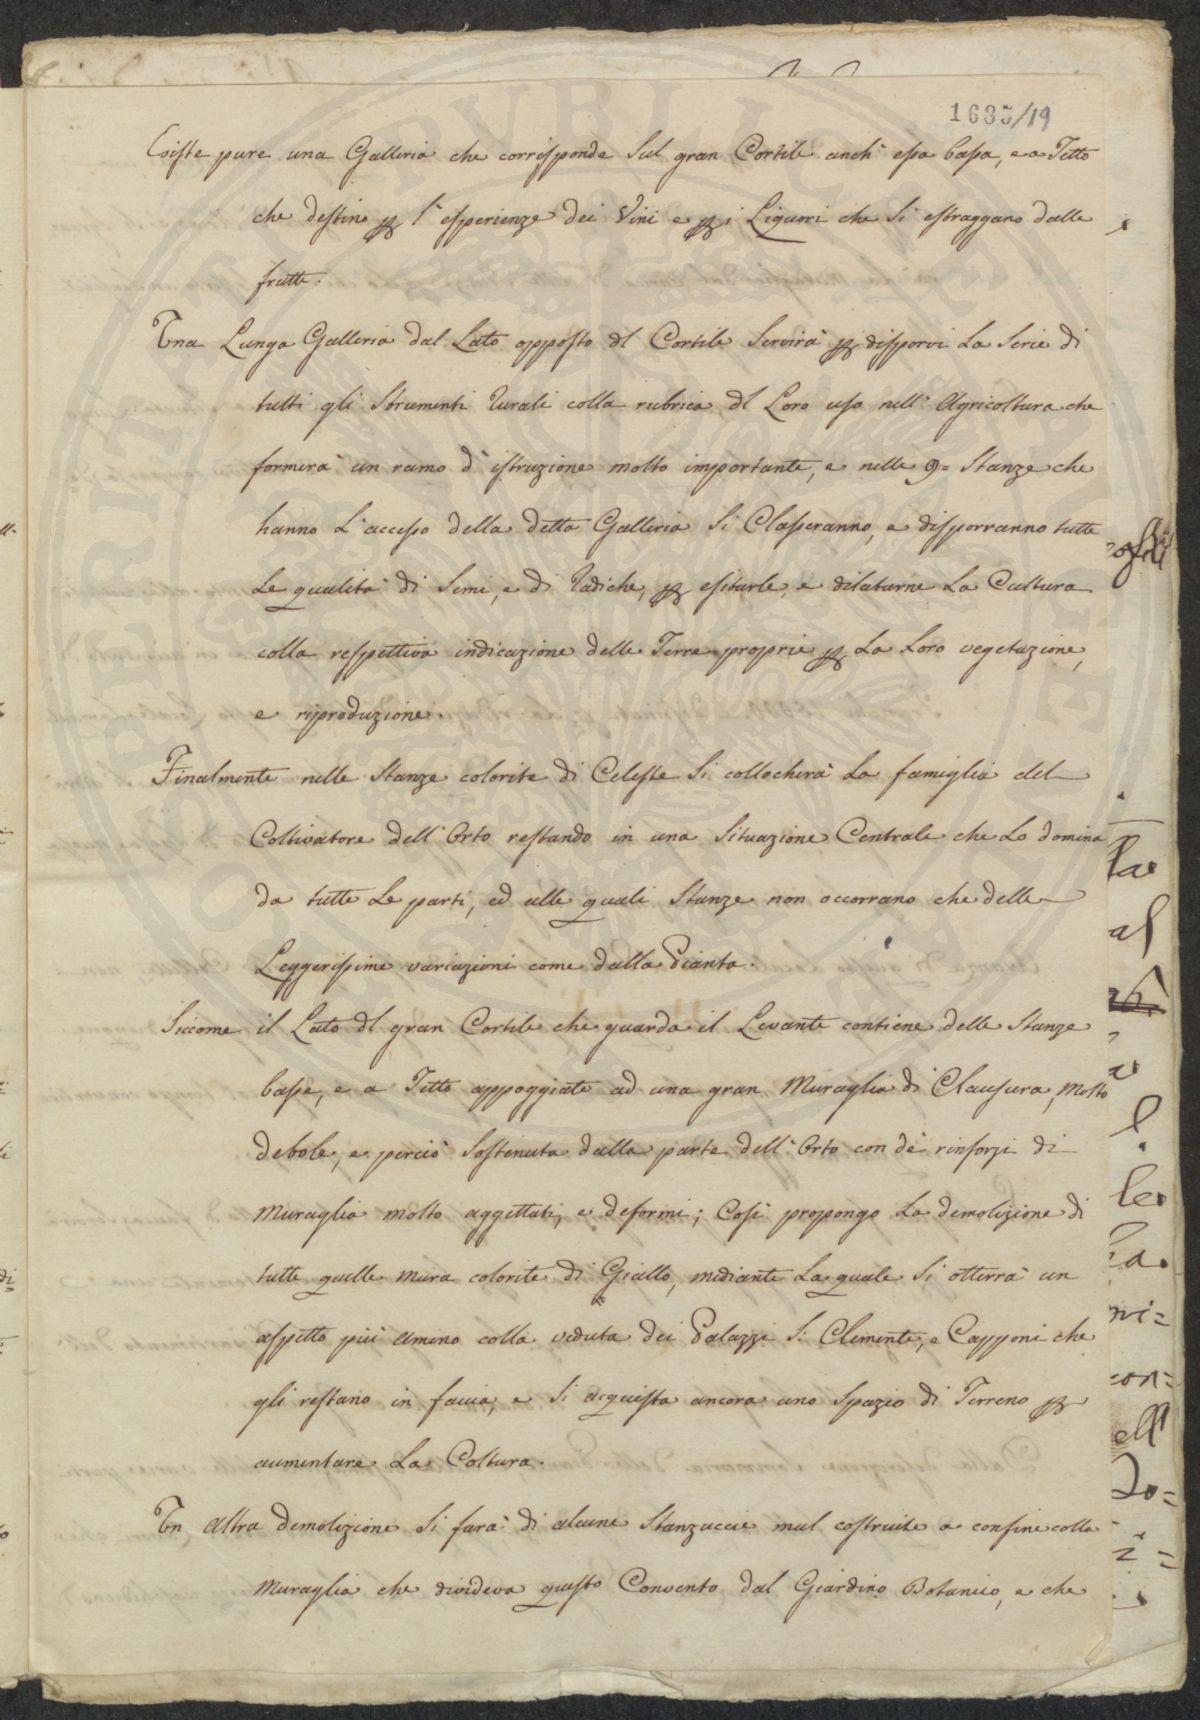 1635/19
Esiste pure una Galleria che corrisponde sul gran Cortile anch' essa bassa, e a Tetto
che destino per l'esperienze dei Vini e per i Liquori che si estraggano dalle
frutte.
Una Lunga Galleria dal Lato opposto dl Cortile Servirà per disporvi La Serie di
tutti gli Strumenti Rurali colla rubrica dl Loro uso nell' Agricoltura che
formerà un ramo d'istruzione molto importante, e nelle 9= Stanze che
hanno L'accesso della detta Galleria Si Classeranno, e disporranno tutte
Le qualità di Semi, e di Radiche, per esitarle, e dilatarne La Cultura
colla respettiva indicazione delle Terre proprie per La Loro vegetazione,
e riproduzione.
Finalmente nelle Stanze colorite di Celeste Si collocherà La famiglia del
Coltivatore dell'Orto restando in una Situazione Centrale che Lo domina
da tutte Le parti, ed alle quali Stanze non occorrano che delle
Leggerissime variazioni come dalla Pianta.
Siccome il Lato dl gran Cortile che guarda il Levante contiene delle Stanze
basse, e a Tetto appoggiate ad una gran Muraglia di Clausura, Molto
debole, e perciò Sostenuta dalla parte dell'Orto con de' rinforzi di
Muraglia molto aggettati, e deformi; Così propongo La demolizione di
tutte quelle mura colorite di Giallo, mediante La quale Si otterrà un
aspetto più ameno colla veduta dei Palazzi S: Clemente, e Capponi che
gli restano in faccia, e Si acquista ancora uno Spazio di Terreno per
aumentare La Coltura.
Un Altra demolizione Si farà di alcune Stanzuccie mal costruite a confine colla
Muraglia che divideva questo Convento dal Giardino Botanico, e che